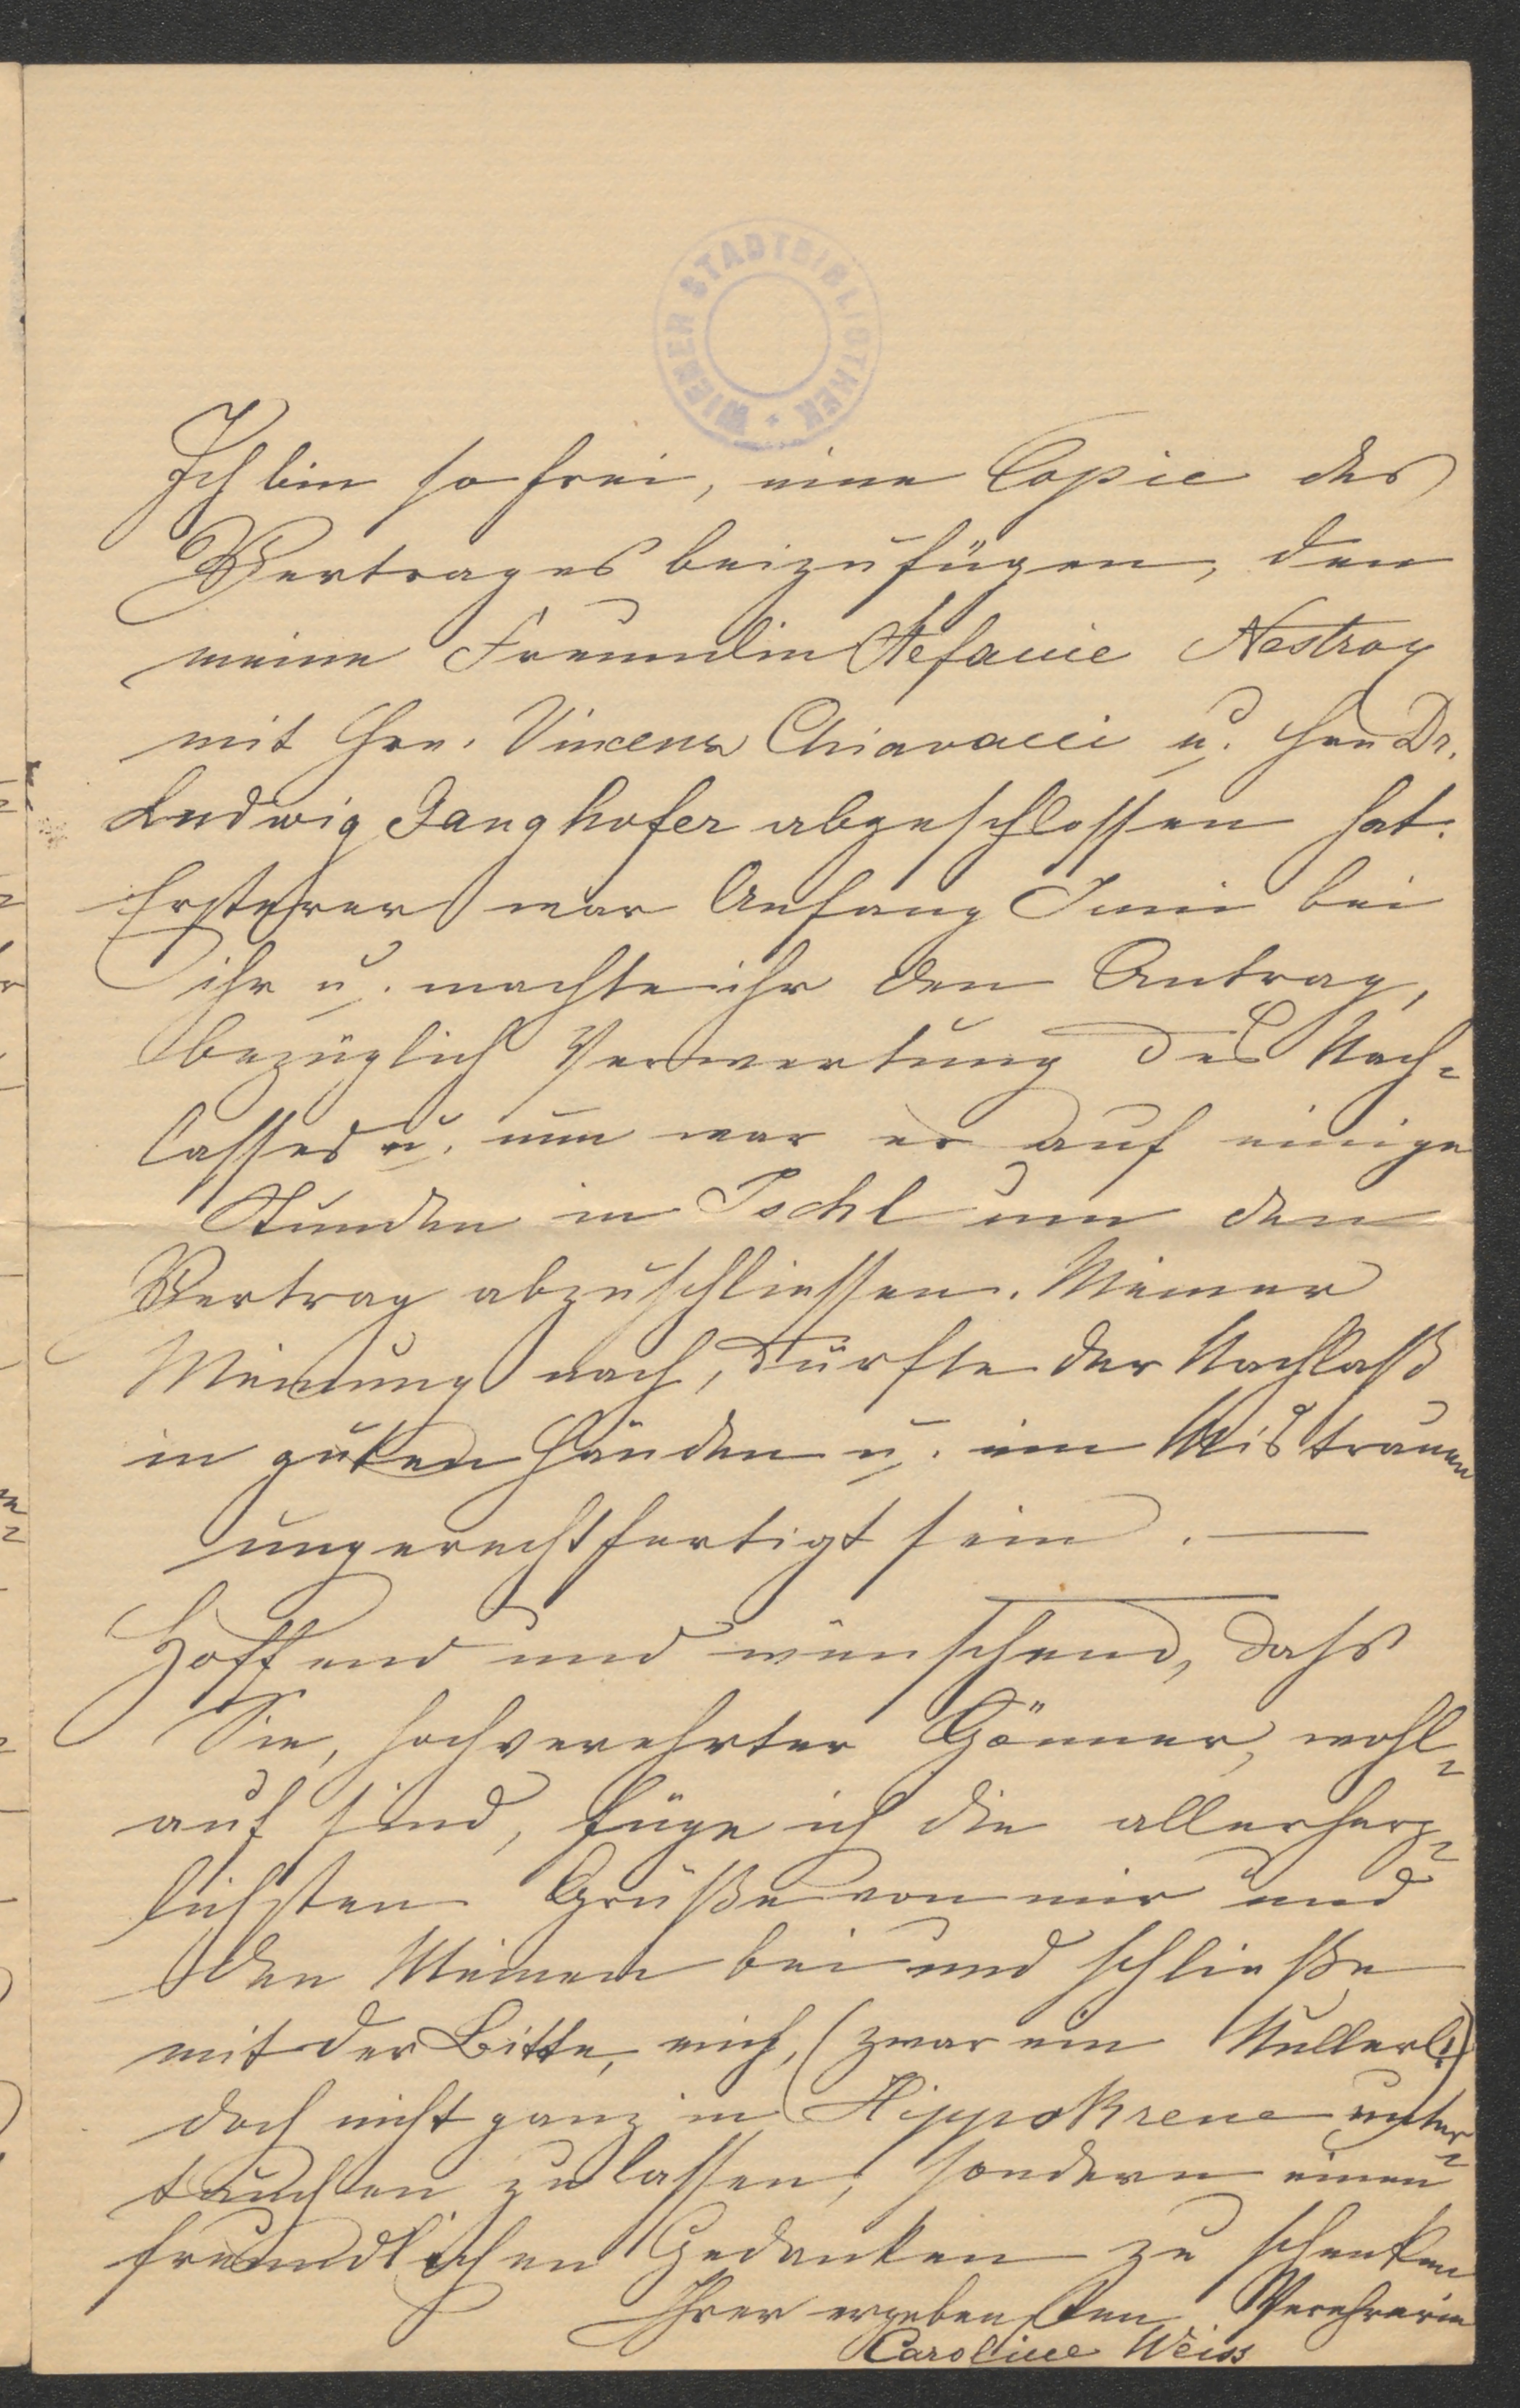 WIENER STADTBIBLIOTHEK
Ich bin so frei, eine Copie des
Vertrages beizufügen, den
meine Freundin Stefanie Nestroy
mit Hrn. Vincenz Chiavacci u. Hrn Dr.
Ludwig Ganghofer abgeschlossen hat.
Ersterer war Anfang Juni bei
ihr u. machte ihr den Antrag,
bezüglich Verwertung des Nach-
lasses u. nun war er auf einige
Stunden in Ischl um den
Vertrag abzuschliessen. Meiner
Meinung nach, dürfte der Nachlaß
in guten Händen u. ein Mistrauen
ungerechtfertigt sein. —
Hoffend und wünschend, dass
Sie, hochverehrter Gönner, wohl-
auf sind, füge ich die allerherz-
lichsten Grüße von mir und
den Meinen bei und schließe
mit der Bitte, mich, (zwar ein Nullerl)
doch nicht ganz in Hippokrene unter-
tauchen zu lassen, sondern einen
freundlichen Gedanken zu schenken
Ihrer ergebensten Verehrerin
Caroline Weiss